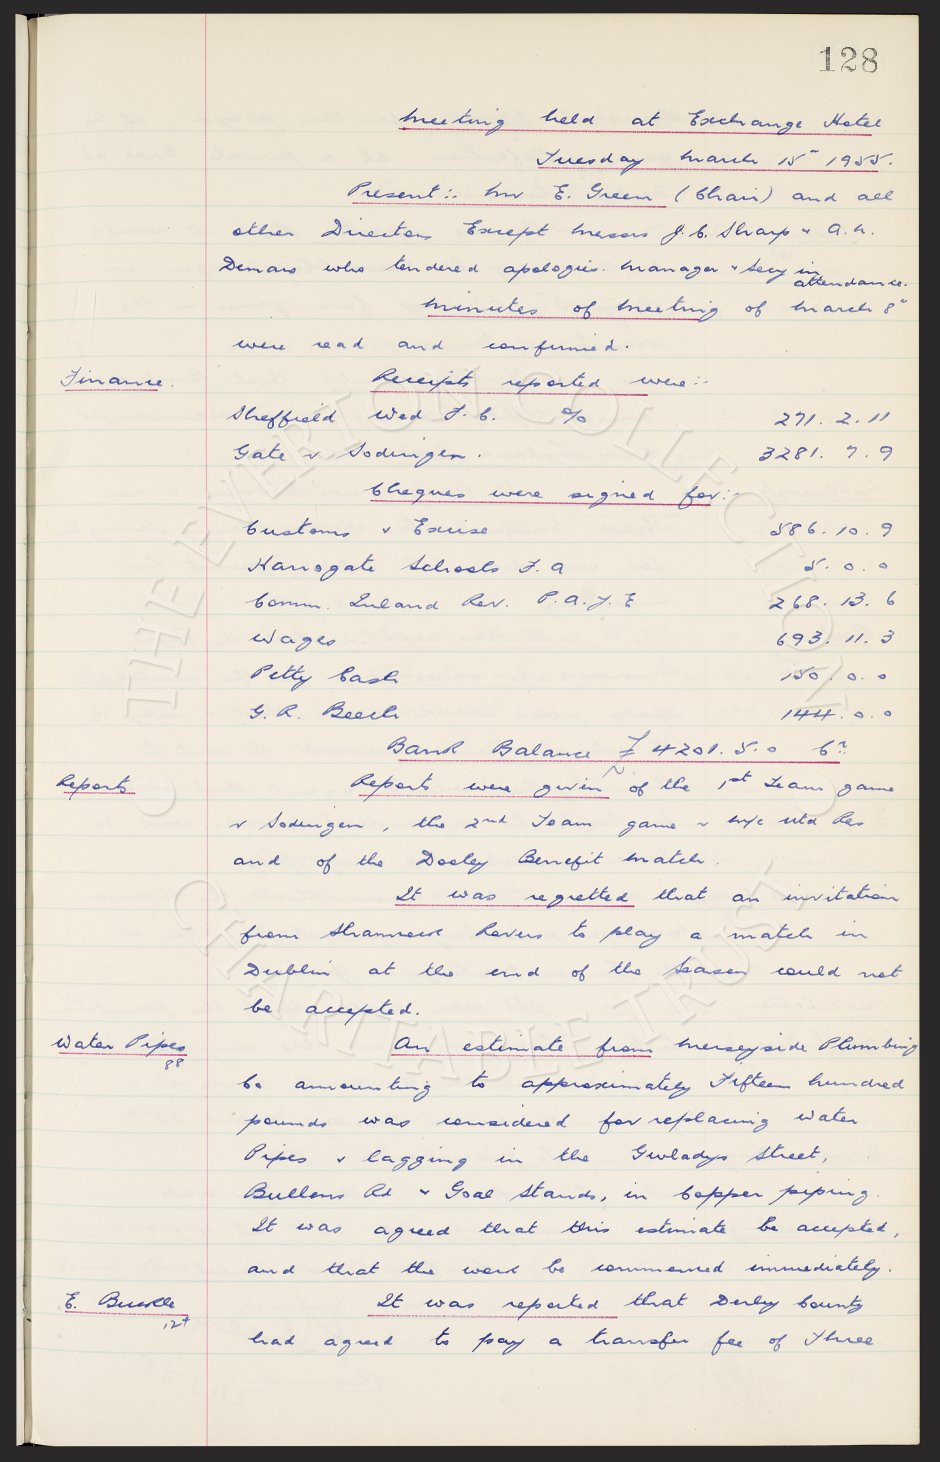 128
Meeting held at Exchange Hotel
Tuesday March 15" 1955.
Present:- Mr E. Green (Chair) and all
other Directors Except Messrs J. C. Sharp & A. N.
Denaro who tendered apologies. Manager & Secy in
attendance.
Minutes of Meeting of March 8"
were read and confirmed.
Finance. Receipts reported were:-
Sheffield Wed F. C. % 271. 2. 11
Gate v Sodingen. 3281. 7. 9
Cheques were signed for:-
Customs & Excise 586. 10. 9
Harrogate Schools F. A 5. 0. 0
Comm. Inland Rev. P. A. Y. E 268. 13. 6
Wages 693. 11. 3
Petty Cash 150. 0. 0
G. R. Beech 144. 0. 0
Bank Balance £4201. 5. 0 Cr
Reports Reports were given of the 1st Team game
v Sodingen, the 2nd Team game v M/c Utd Res
and of the Dooley Benefit Match.
It was regretted that an invitation
from Shamrock Rovers to play a match in
Dublin at the end of the Season could not
be accepted.
Water Pipes An estimate from Merseyside Plumbing
88
Co amounting to approximately Fifteen hundred
pounds was considered for replacing Water
Pipes & lagging in the Gwladys Street,
Bullens Rd & Goal Stands, in Copper piping.
It was agreed that this estimate be accepted,
and that the work be commenced immediately.
E. Buckle It was reported that Derby County
127
had agreed to pay a transfer fee of Three
© THE EVERTON COLLECTION
CHARITABLE TRUST